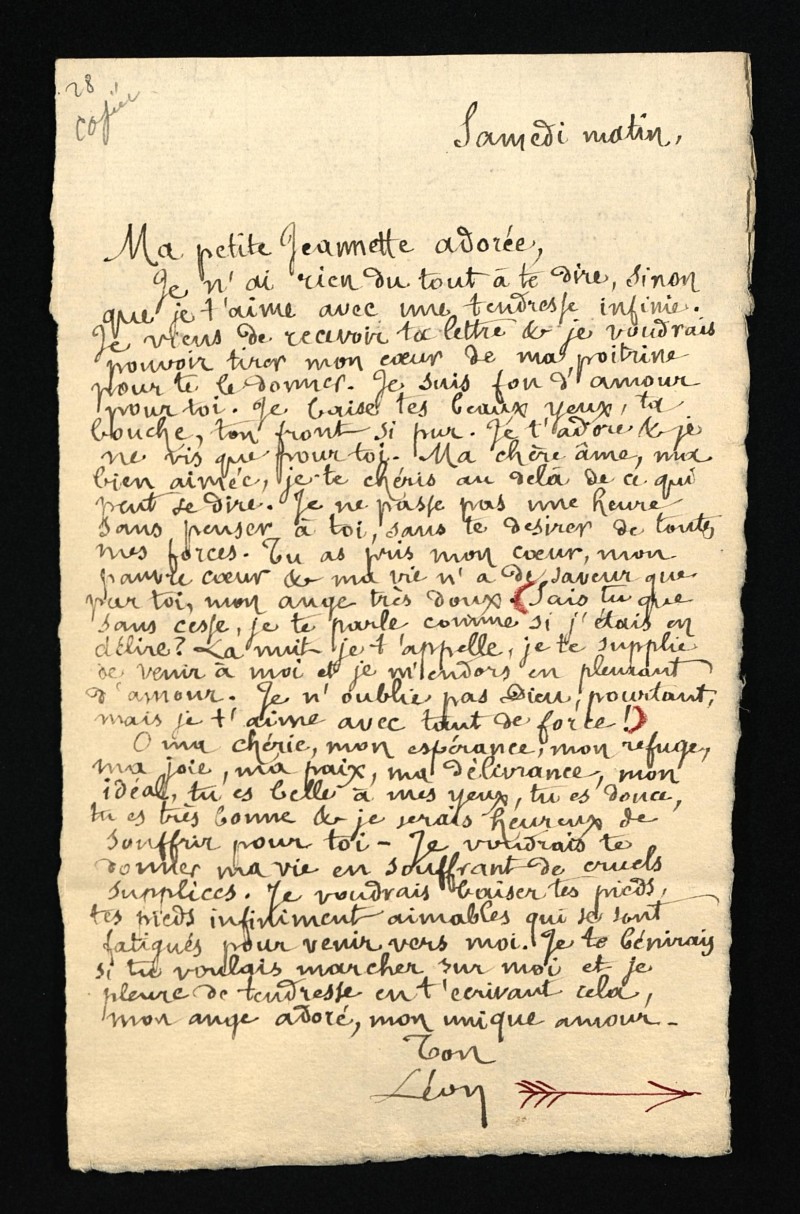 28
Copiée
Samedi matin,
Ma petite Jeannette adorée,
Je n'ai rien du tout à te dire, sinon
que je t'aime avec une tendresse infinie.
Je viens de recevoir ta lettre & je voudrais
pouvoir tirer mon cœur de ma poitrine
pour te le donner. Je suis fou d'amour
pour toi. Je baise tes beaux yeux, ta
bouche, ton front si pur. Je t'adore & je
ne vis que pour toi. Ma chère âme, ma
bien aimée, je te chéris au delà de ce qui
peut se dire. Je ne passe pas une heure
sans penser à toi, sans te desirer de toutes
mes forces. Tu as pris mon cœur, mon
pauvre cœur & ma vie n'a de saveur que
par toi, mon ange très doux. (Sais tu que
sans cesse, je te parle comme si j'étais en
délire? La nuit je t'appelle, je te supplie
de venir à moi et je m'endors en pleurant
d'amour. Je n'oublie pas Dieu, pourtant,
mais je t'aime avec tant de force !)
O ma chérie, mon espérance, mon refuge,
ma joie, ma paix, ma délivrance, mon
idéal, tu es belle à mes yeux, tu es douce,
tu es très bonne & je serais heureux de
souffrir pour toi - Je voudrais te
donner ma vie en souffrant de cruels
supplices. Je voudrais baiser tes pieds,
tes pieds infiniment aimables qui se sont
fatigués pour venir vers moi. Je te bénirais
si tu voulais marcher sur moi et je
pleure de tendresse en t'ecrivant cela,
mon ange adoré, mon unique amour -
Ton
Léon